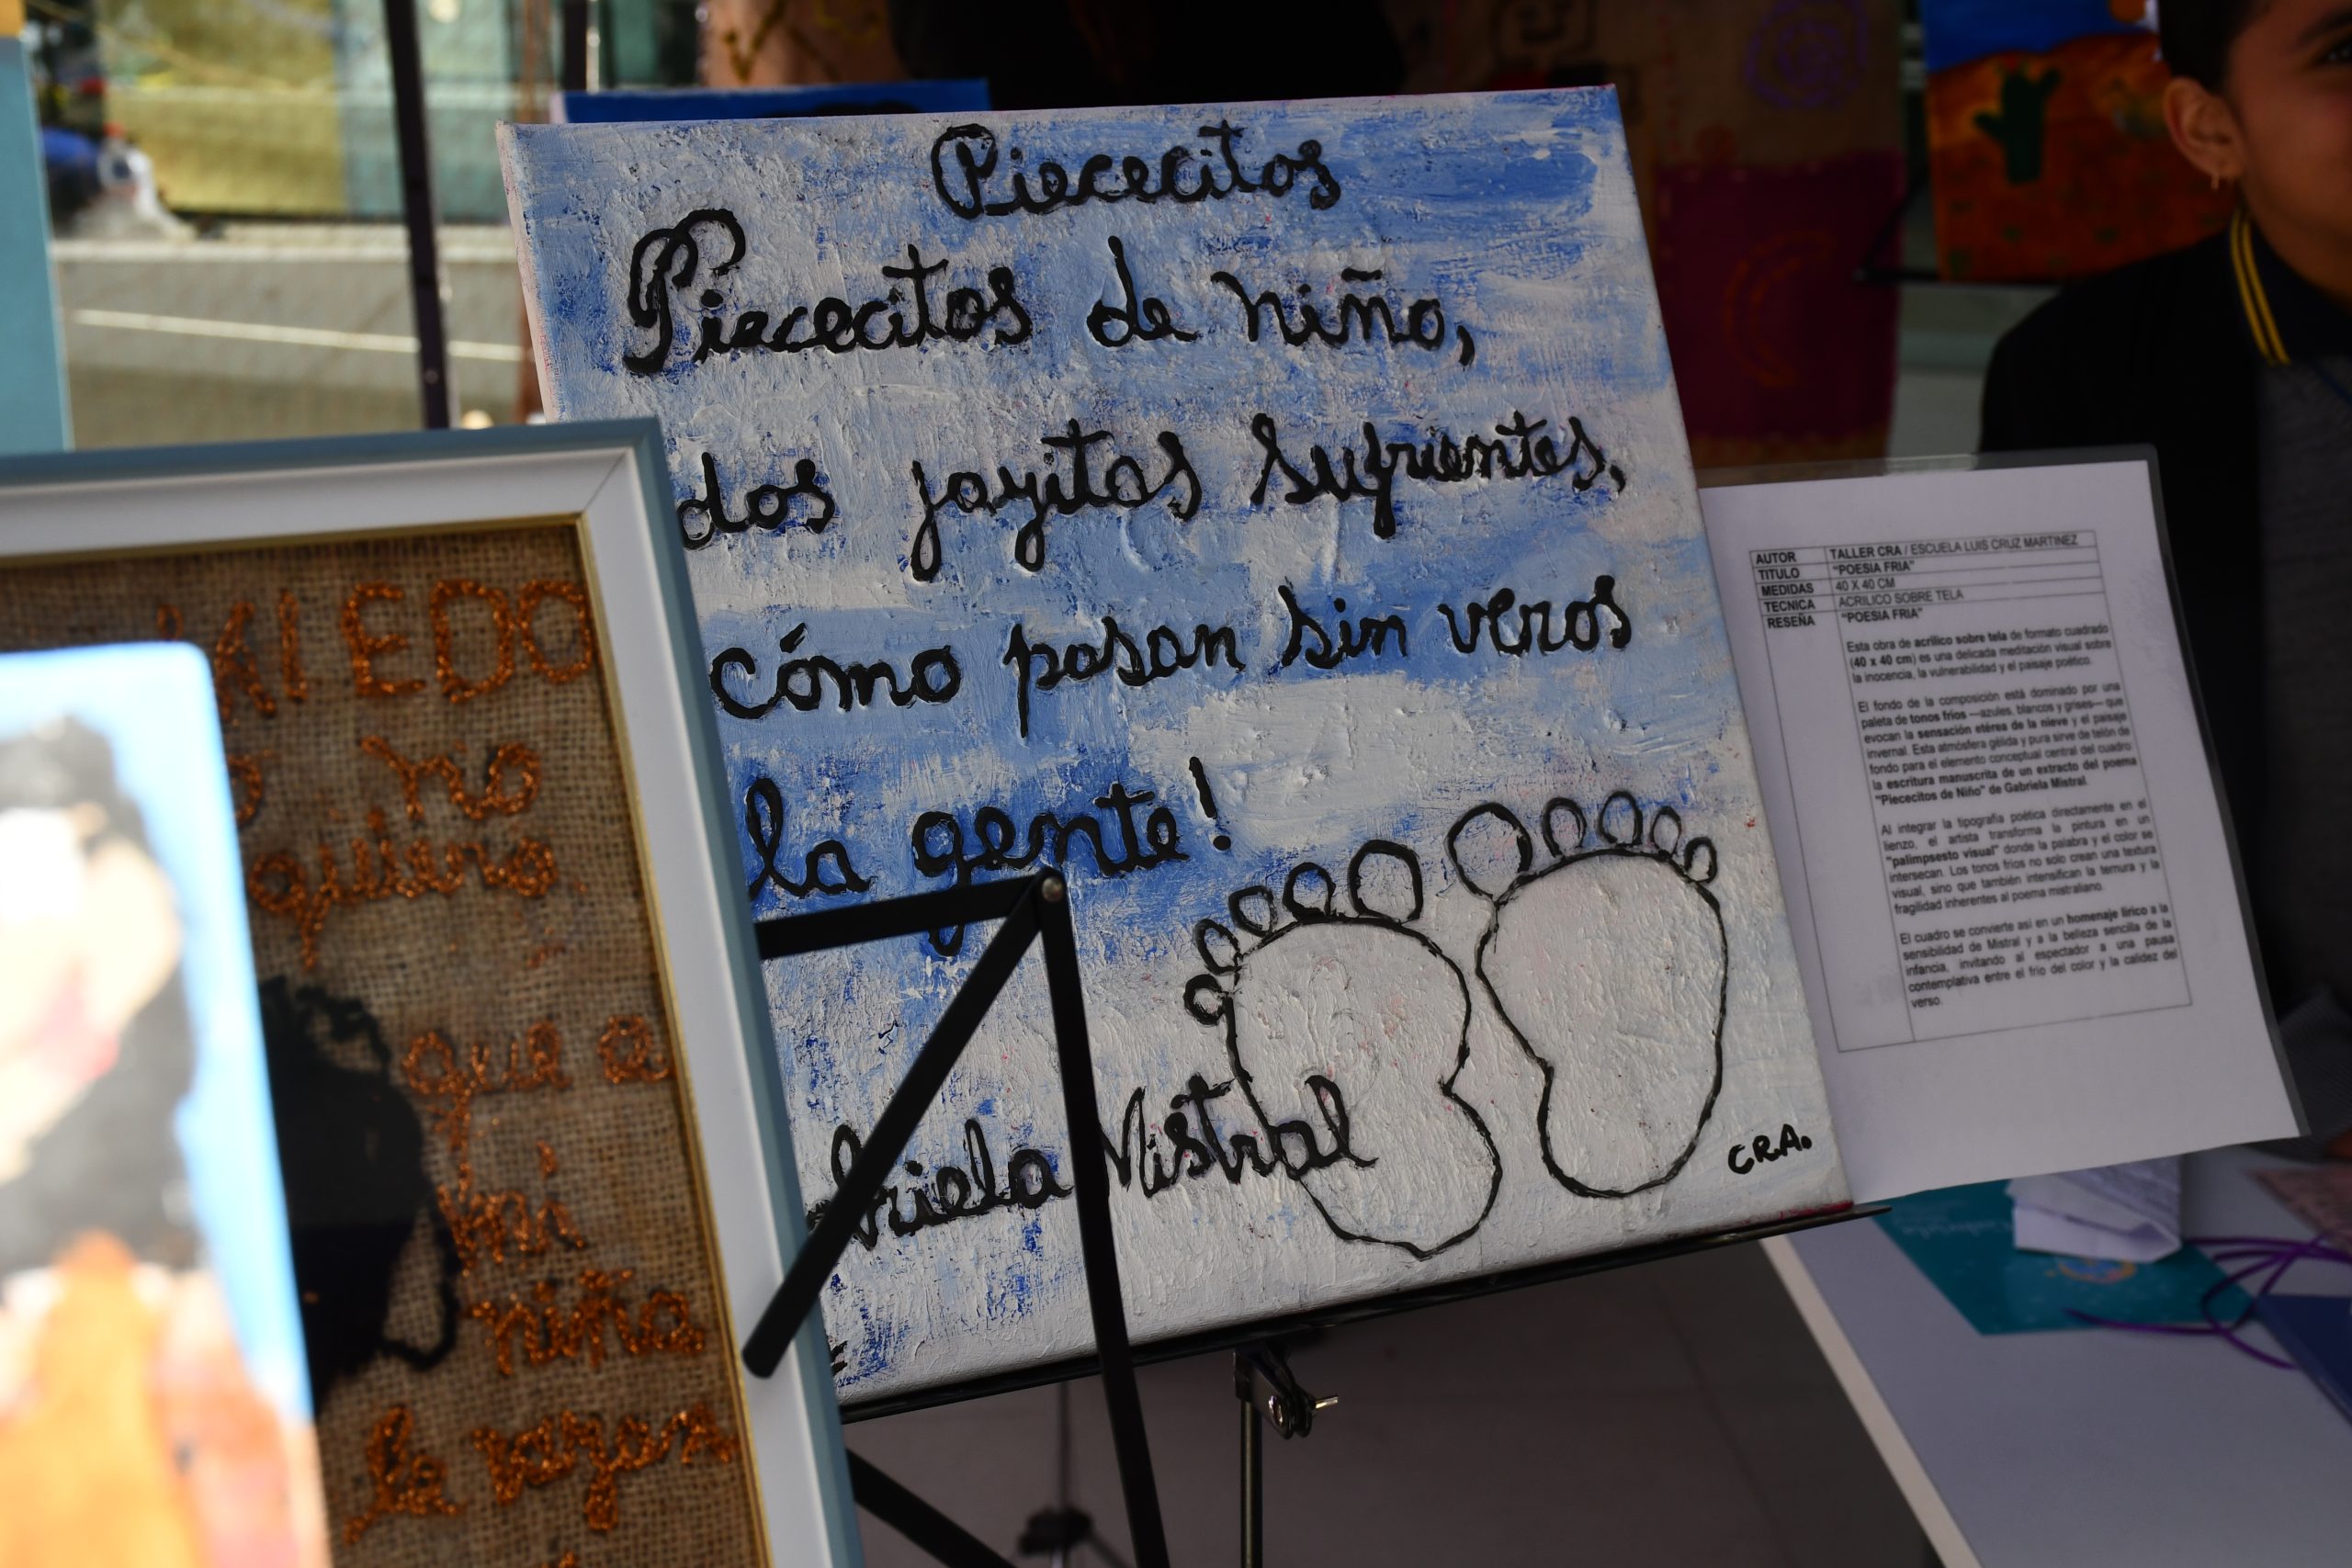 Piececitos
Piececitos de niño,
dos joyitas sufrientes,
cómo pasan sin veros
la gente!
briela Mistral
C.R.A.
MIEDO
no
quiero
que a
mi
niña
la
AUTOR TALLER CRA / ESCUELA LUIS CRUZ MARTINEZ
TITULO "POESIA FRIA"
MEDIDAS 40 X 40 CM
TECNICA ACRILICO SOBRE TELA
RESEÑA "POESIA FRIA"
Esta obra de acrílico sobre tela de formato cuadrado
(40 x 40 cm) es una delicada meditación visual sobre
la inocencia, la vulnerabilidad y el paisaje poético.
El fondo de la composición está dominado por una
paleta de tonos fríos —azules, blancos y grises— que
evocan la sensación etérea de la nieve y el paisaje
invernal. Esta atmósfera gélida y pura sirve de telón de
fondo para el elemento conceptual central del cuadro
la escritura manuscrita de un extracto del poema
"Piececitos de Niño" de Gabriela Mistral.
Al integrar la tipografía poética directamente en el
lienzo, el artista transforma la pintura en un
"palimpsesto visual" donde la palabra y el color se
intersecan. Los tonos fríos no solo crean una textura
visual, sino que también intensifican la ternura y la
fragilidad inherentes al poema mistraliano.
El cuadro se convierte así en un homenaje lírico a la
sensibilidad de Mistral y a la belleza sencilla de la
infancia, invitando al espectador a una pausa
contemplativa entre el frío del color y la calidez del
verso.